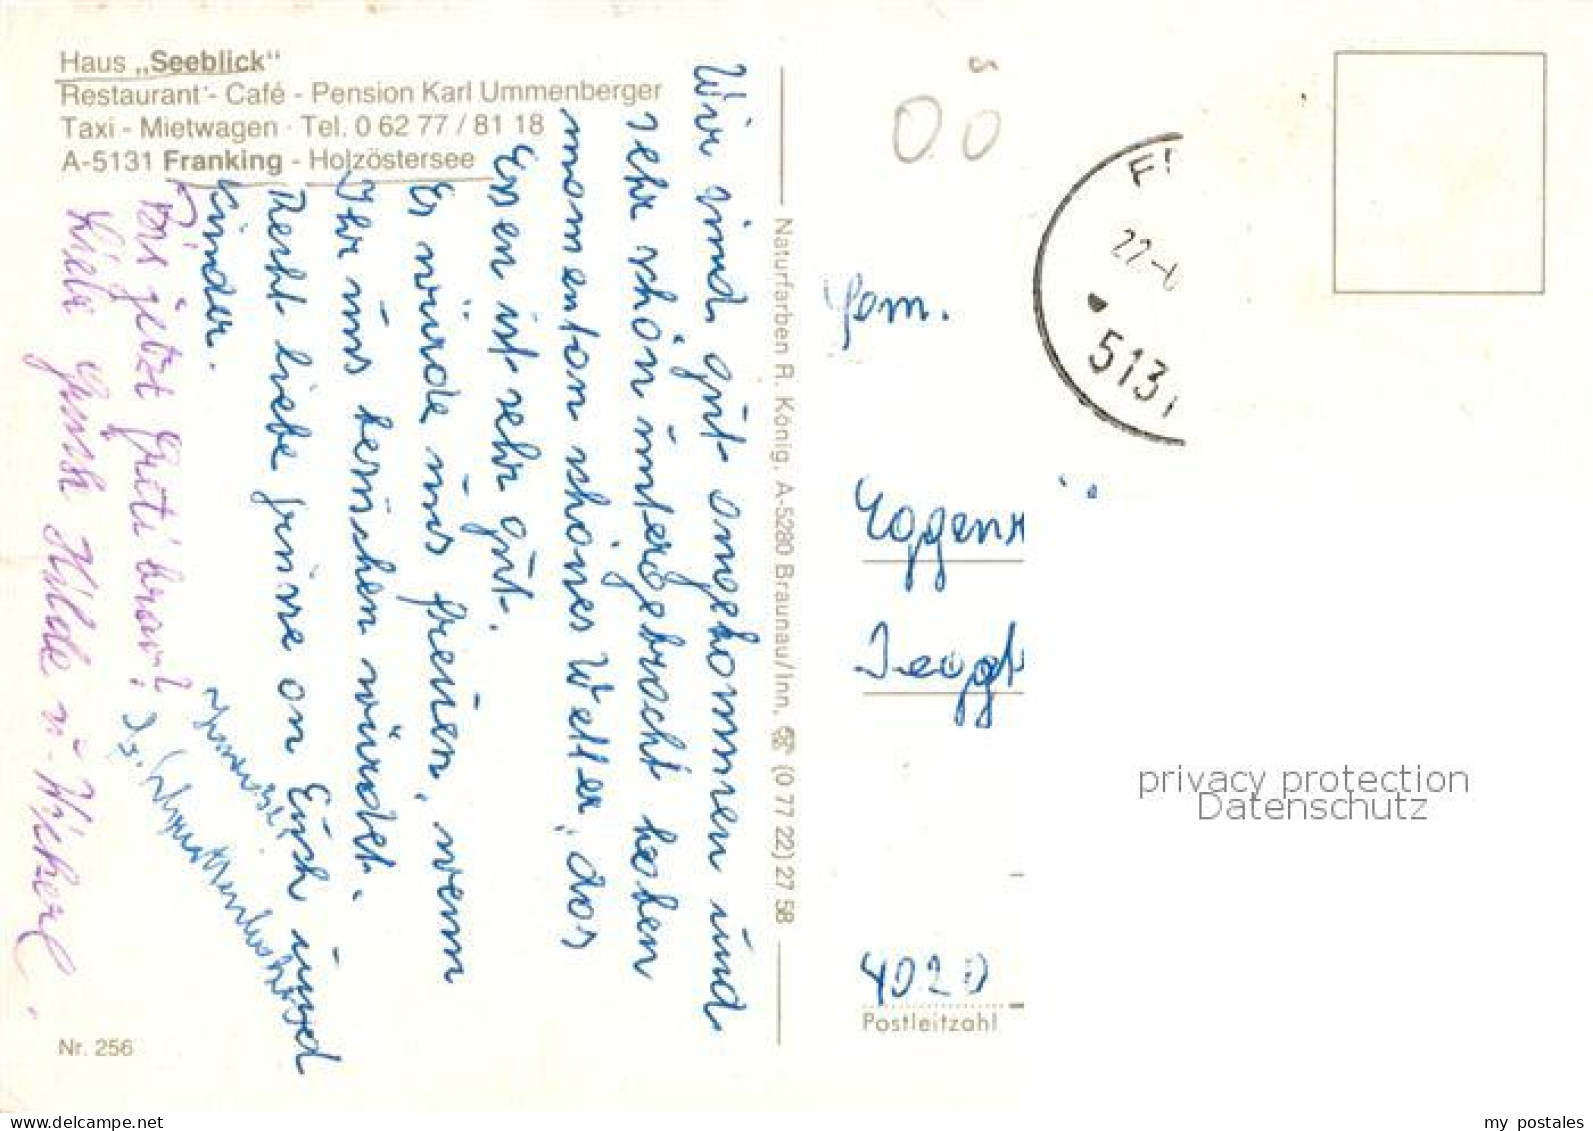 Haus „Seeblick“
Restaurant - Café - Pension Karl Ummenberger
Taxi - Mietwagen · Tel. 0 62 77 / 81 18
A-5131 Franking - Holzöstersee
Wir sind gut angekommen und
sehr schön untergebracht haben
momentan schönes Wetter, das
Essen ist sehr gut.
Es würde uns freuen, wenn
Ihr uns besuchen würdet.
Recht liebe Grüße an Euch und
Kinder.
jetzt Greti brav?
Hilde u.
Nr. 256
Naturfarben R. König, A-5280 Braunau/Inn, ☏ (0 77 22) 27 58
OÖ
Fam.
F
22-6
5131
4020
Postleitzahl
privacy protection
Datenschutz
my postales